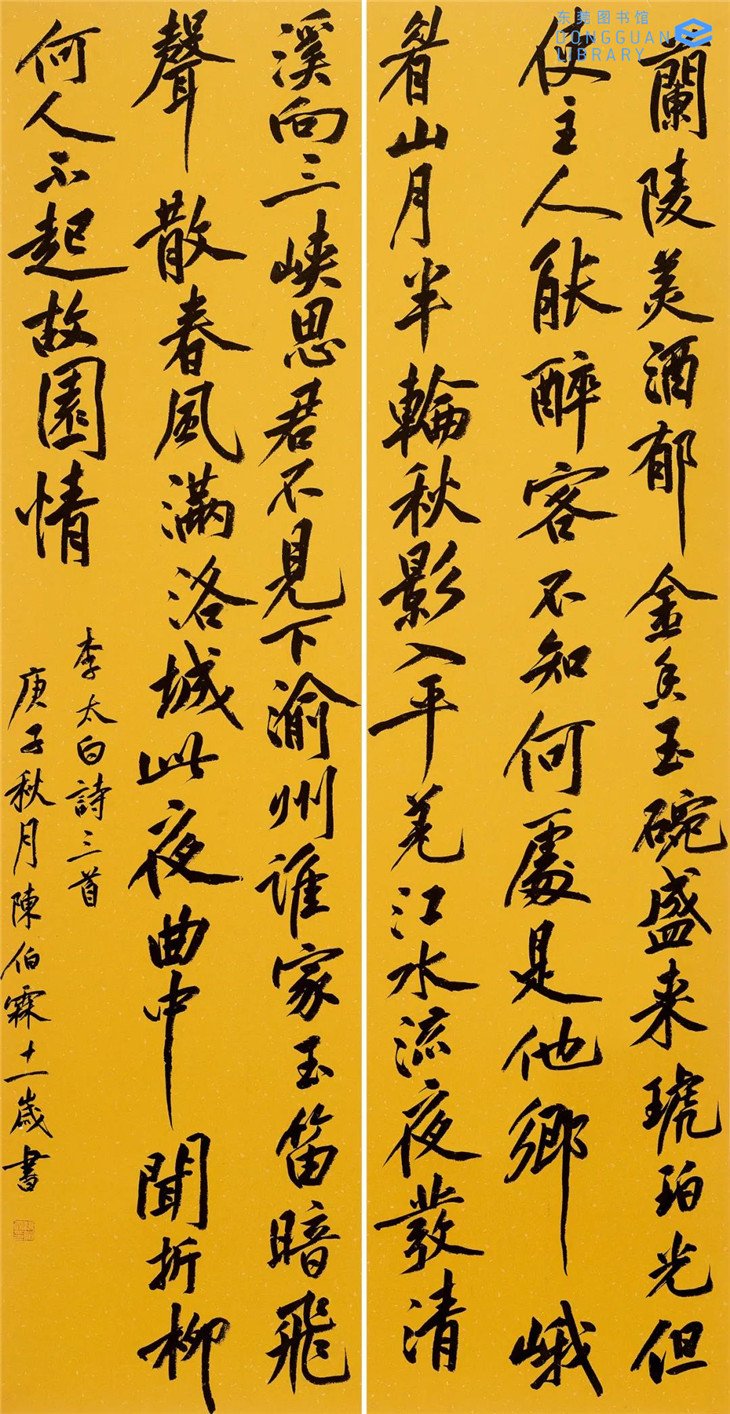 东莞图书馆
DONGGUAN
LIBRARY
蘭陵美酒郁金香玉碗盛来琥珀光但
使主人能醉客不知何處是他鄉峨
眉山月半輪秋影入平羌江水流夜發清
溪向三峡思君不見下渝州誰家玉笛暗飛
聲散春風滿洛城此夜曲中聞折柳
何人不起故園情
李太白詩三首
庚子秋月陳伯霖十一歲書